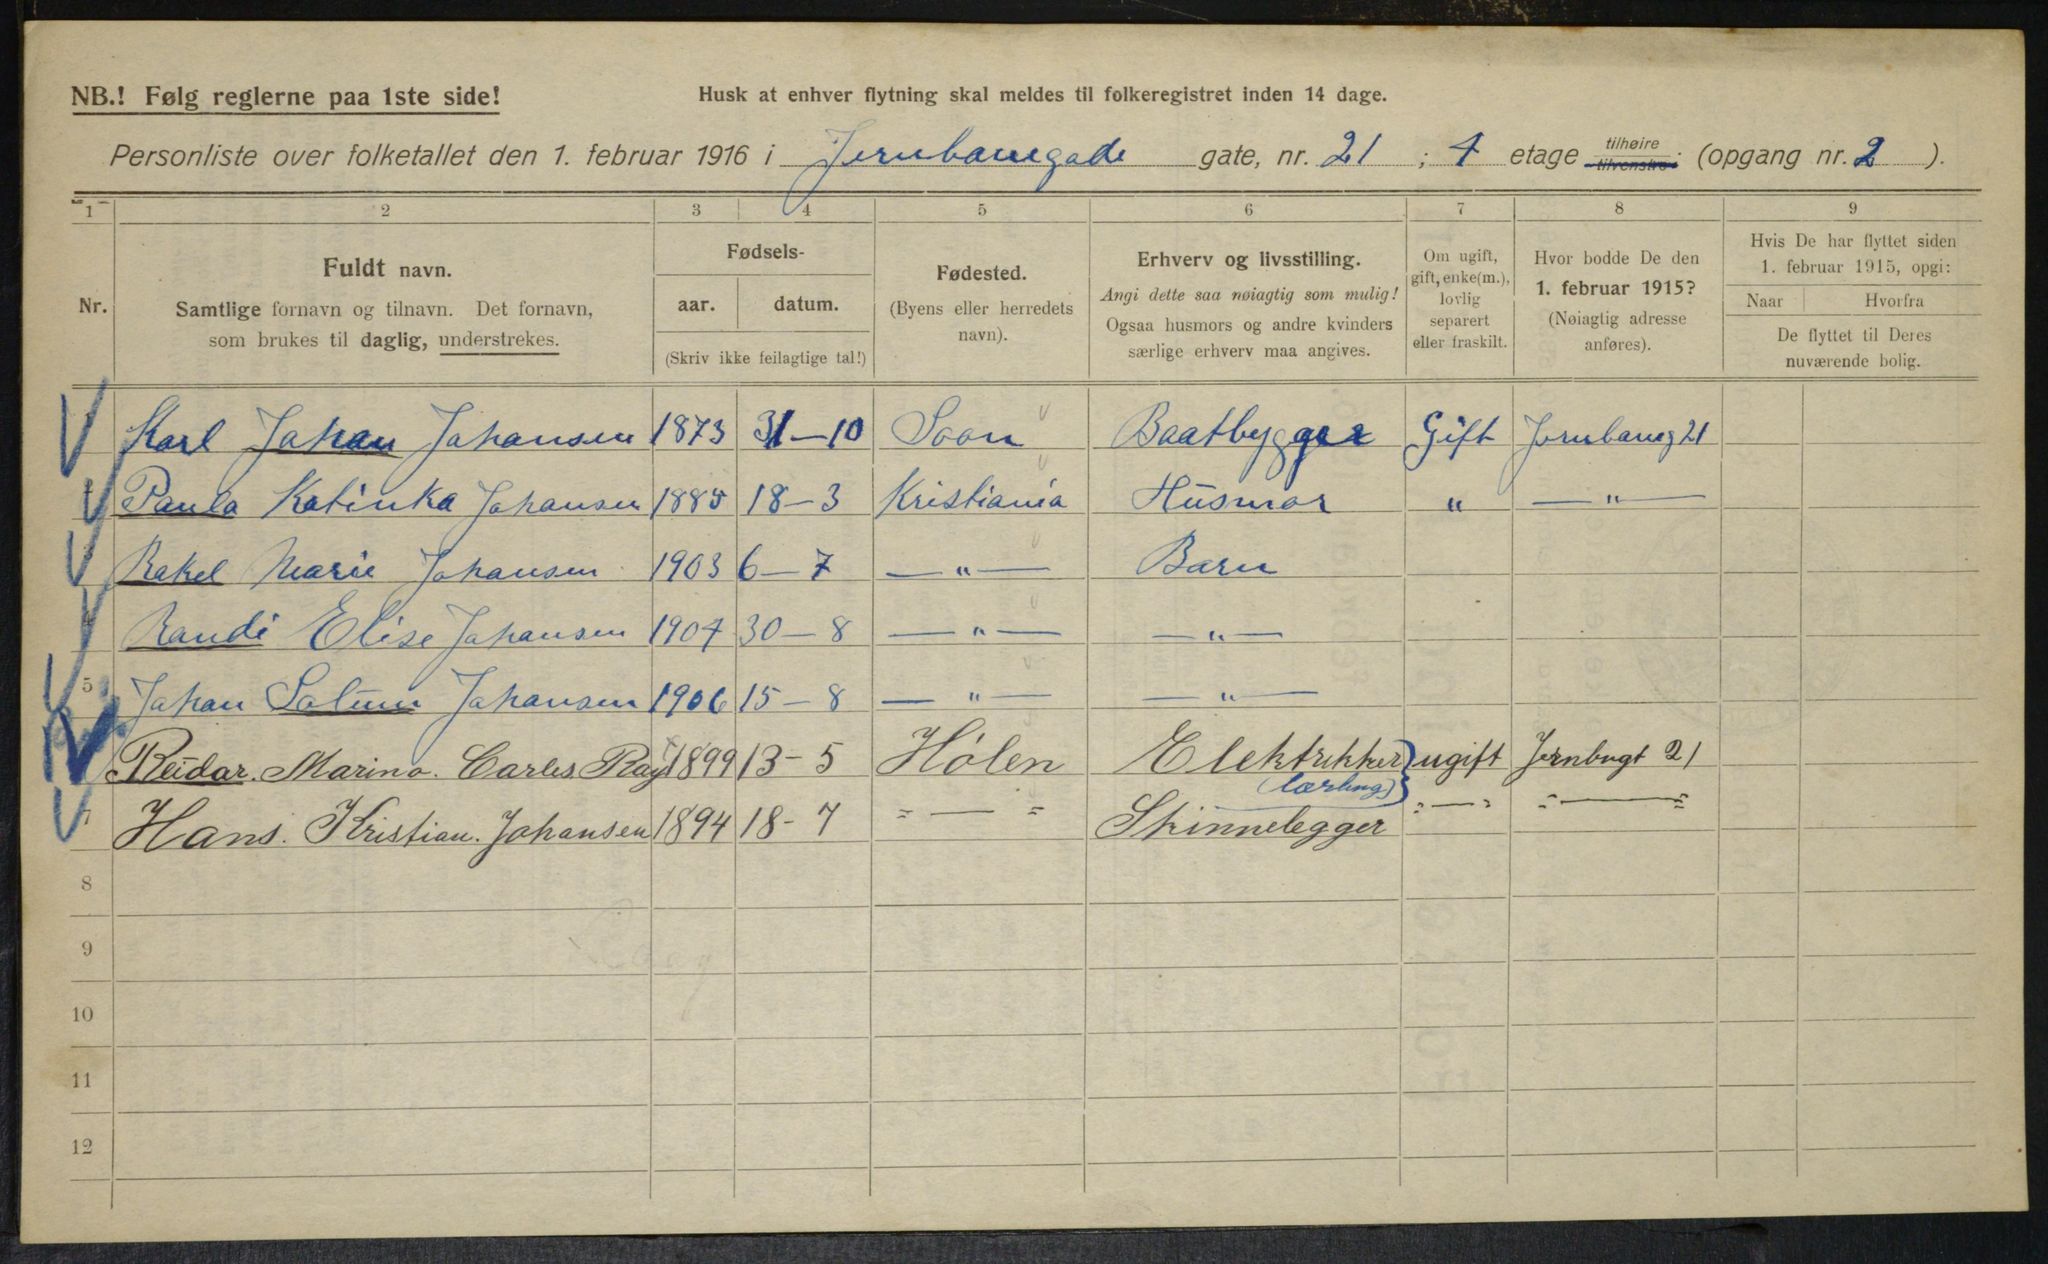 NB.! Følg reglerne paa 1ste side!
Husk at enhver flytning skal meldes til folkeregistret inden 14 dage.
Personliste over folketallet den 1. februar 1916 i Jernbanegade gate, nr. 21 ; 4 etage tilhøire tilvenstre. (opgang nr. 2 ).
1 2 3 4 5 6 7 8 9
Nr.
Fuldt navn.
Samtlige fornavn og tilnavn. Det fornavn,
som brukes til daglig, understrekes.
Fødsels-
aar. datum.
(Skriv ikke feilagtige tal!)
Fødested.
(Byens eller herredets
navn).
Erhverv og livsstilling.
Angi dette saa nøiagtig som mulig!
Ogsaa husmors og andre kvinders
særlige erhverv maa angives.
Om ugift,
gift, enke(m.),
lovlig
separert
eller fraskilt.
Hvor bodde De den
1. februar 1915?
(Nøiagtig adresse
anføres).
Hvis De har flyttet siden
1. februar 1915, opgi:
Naar Hvorfra
De flyttet til Deres
nuværende bolig.
Karl Johan Johansen 1873 31-10 Soon Baatbygger Gift Jernbaneg 21
Paula Katinka Johansen 1885 18-3 Kristiania Husmor " — " —
Rakel Marie Johansen 1903 6-7 — " — Barn
Randi Elise Johansen 1907 30-8 — " — — " —
5 Johan Johansen 1906 15-8 — " — — " —
Reidar. Marino. Carles Ray 1899 13-5 Hølen Elektrikker ugift Jernbngt 21
(lærling)
7 Hans. Kristian. Johansen 1894 18-7 " — " Skinnelegger " — " " — "
8
9
10
11
12